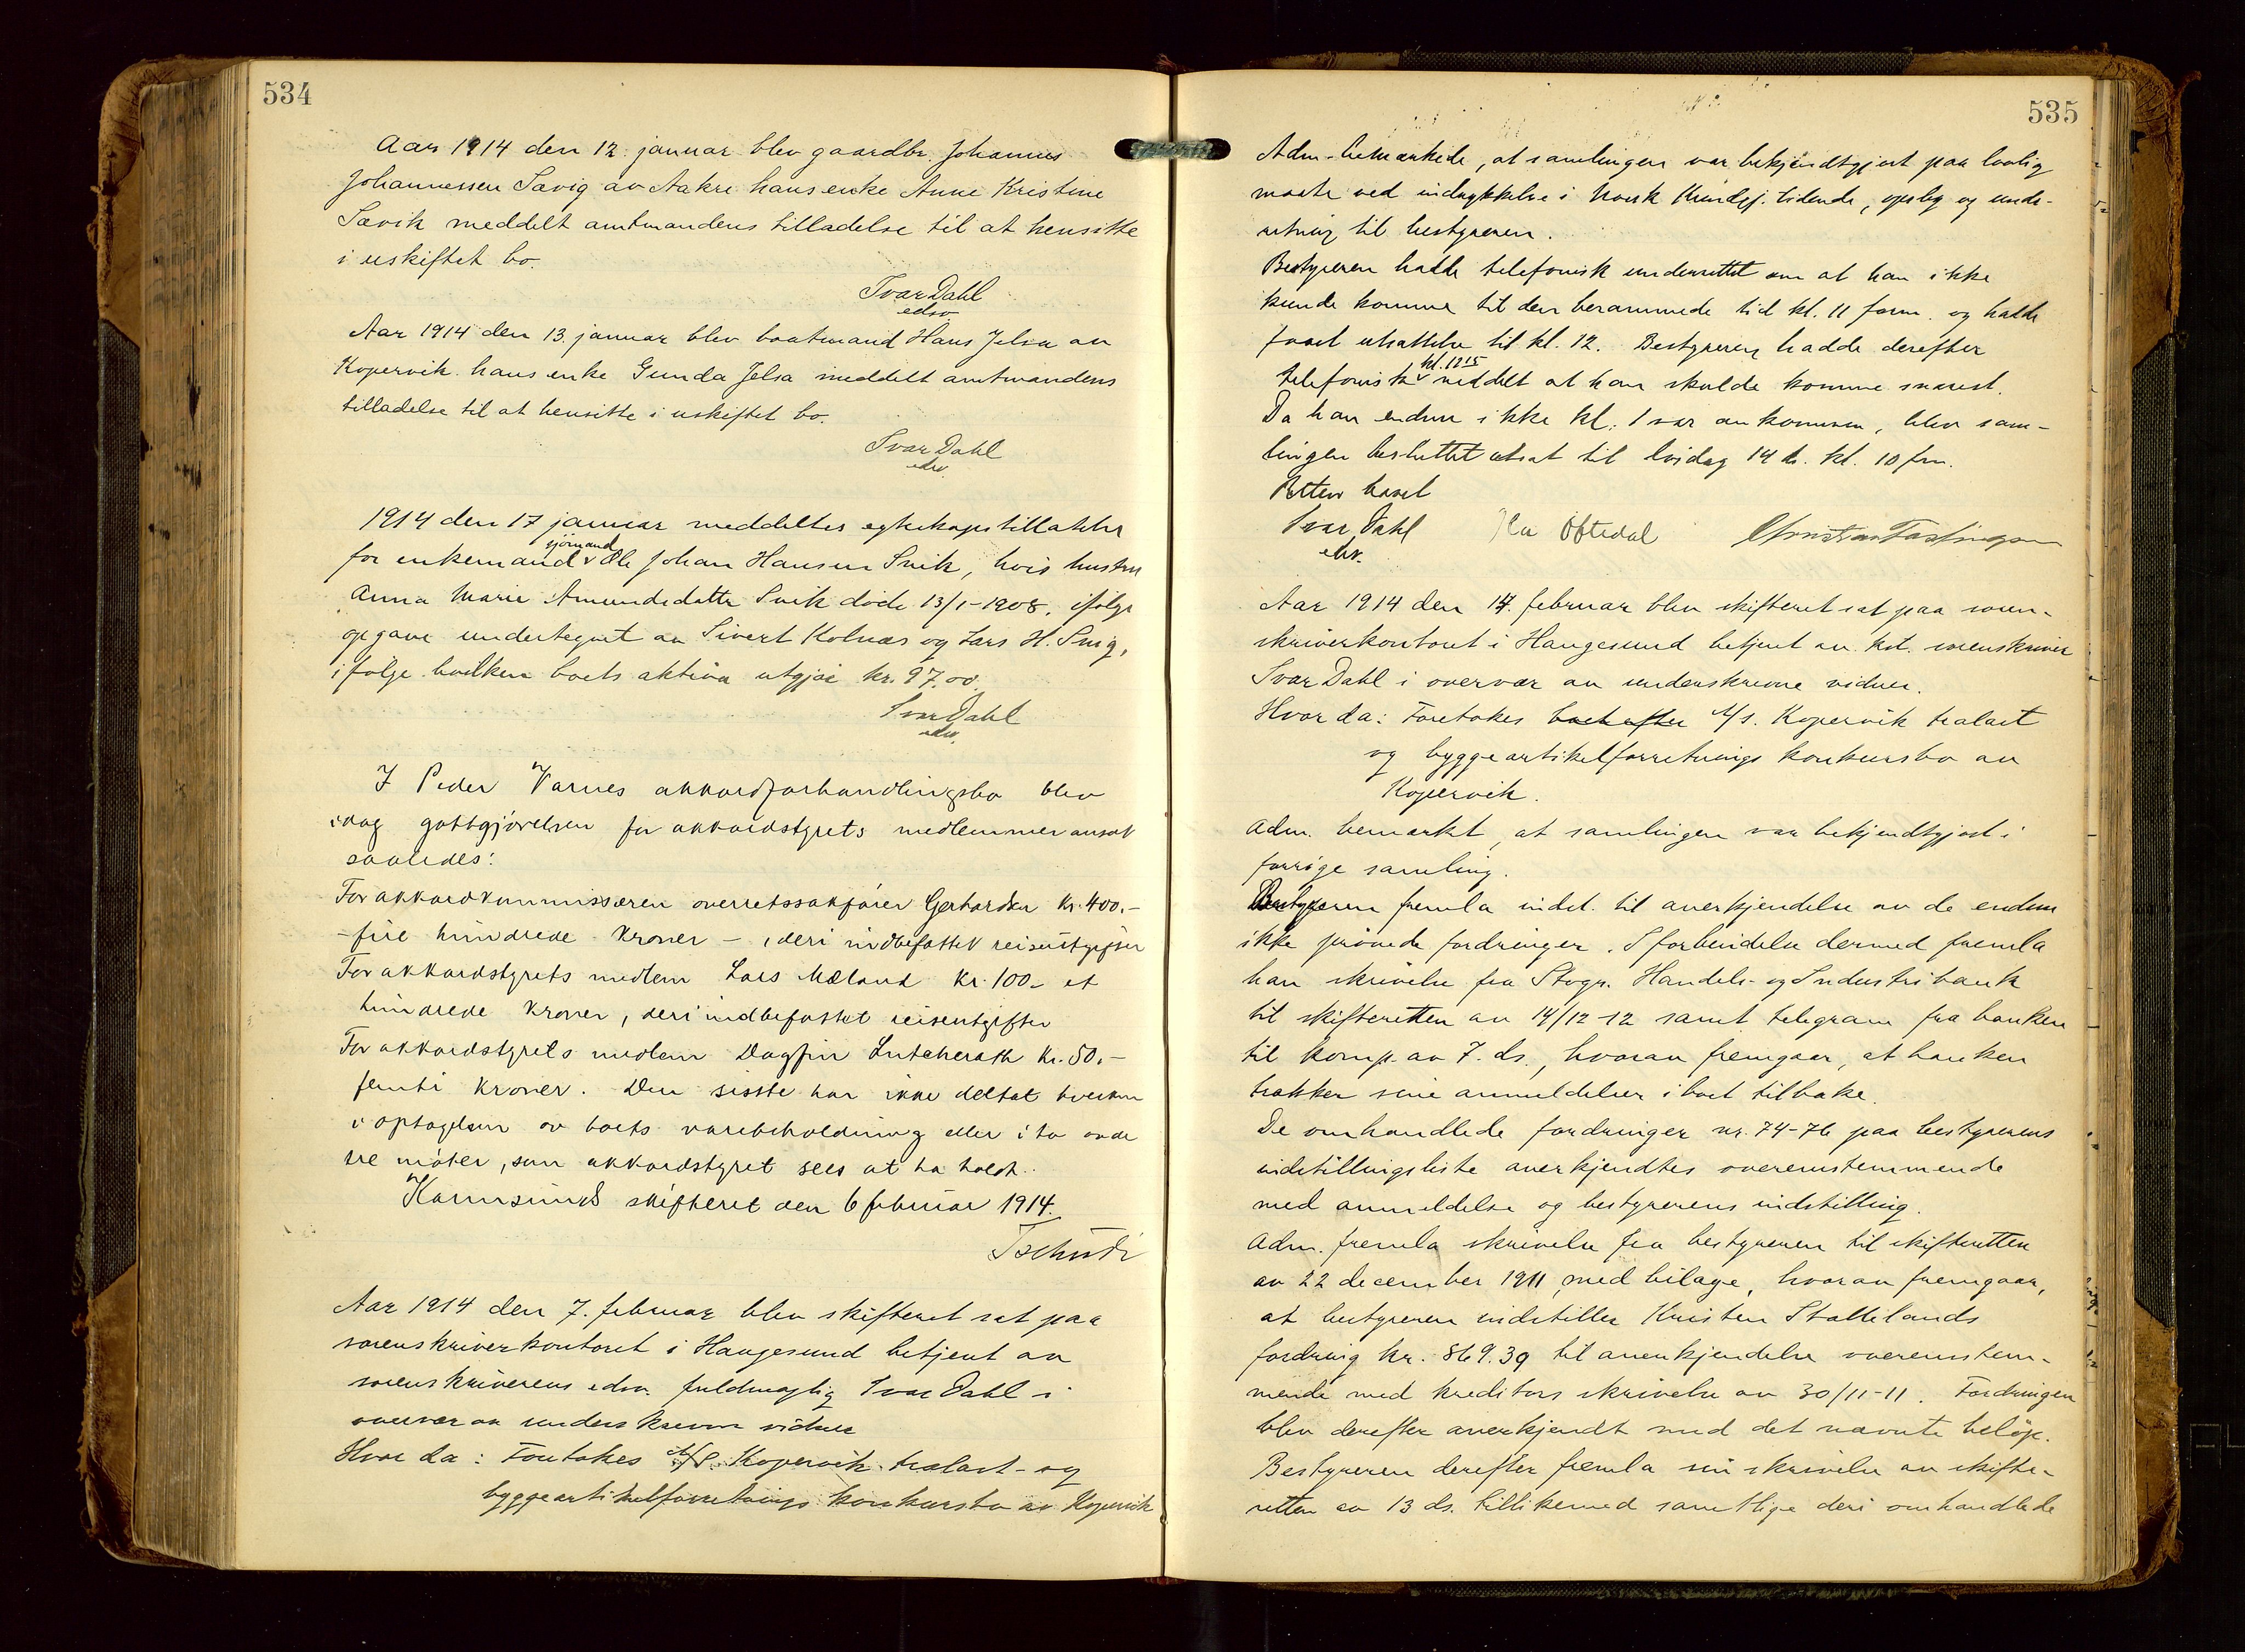 534
Aar 1914 den 12. januar blev gaardbr. Johannes
Johannessen Sævig av Aakre hans enke Anne Kristine
Sævik meddelt amtmandens tilladelse til at hensitte
i uskiftet bo.
Ivar Dahl
edsv
Aar 1914 den 13. januar blev baatmand Hans Jelsa av
Kopervik hans enke Gunda Jelsa meddelt amtmandens
tilladelse til at hensitte i uskiftet bo.
Ivar Dahl
edsv.
1914 den 17 januar meddeltes egteskapstilladelse
sjömand
for enkemand v Ole Johan Hansen Snik, hvis hustru
Anna Marie Amundsdatter Snik döde 13/1-1908, ifölge
opgave undertegnet av Sivert Kolnæs og Lars H. Snig,
ifölge hvilken boets aktiva utgjör kr. 97.00.
Ivar Dahl
edsv.
I Peder Varnes akkordforhandlingsbo blev
idag godtgjørelsen for akkordstyrets medlemmer ansat
saaledes:
For akkordkommissæren overretssakfører Gerhardsen kr. 400.-
- fire hundrede kroner -, deri indbefattet reiseutgifter
For akkordstyrets medlem Lars Mæland kr. 100.- et
hundrede kroner, deri indbefattet reiseutgifter
For akkordstyrets medlem Dagfin Lutcherath kr. 50.-
femti kroner. Den sisste har ikke deltat hverken
i optagelsen av boets varebeholdning eller i to av de
tre møter, som akkordstyret sees at ha holdt.
Karmsunds skifteret den 6 februar 1914.
Tschudi
Aar 1914 den 7. februar blev skifteret sat paa
sorenskriverkontoret i Haugesund betjent av
sorenskriverens edsv. fuldmægtig Ivar Dahl i
overvær av underskrevne vidner
Hvor da: Foretokes A/S. Kopervik trælast- og
byggeartikelforretnings konkursbo av Kopervik
535
Adm. bemærkede, at samlingen var bekjendtgjort paa lovlig
maate ved indrykkelse i Norsk Kundgj. tidende, opslag og unde-
retning til bestyreren.
Bestyreren hadde telefonisk underrettet om at han ikke
kunde komme til den berammede tid kl. 11 form. og hadde
faaet utsættelse til kl. 12. Bestyreren hadde derefter
kl. 12 15
telefonisk v meddelt at han skulde komme snarest.
Da han endnu ikke kl. 1 var ankommen, blev sam-
lingen besluttet utsat til lördag 14 ds. kl. 10 fm.
Retten hævet
Ivar Dahl
edsv.
Ola Oftedal
Christian Fastingsen
Aar 1914 den 14. februar blev skifteret sat paa soren-
skriverkontoret i Haugesund betjent av kst. sorenskriver
Ivar Dahl i overvær av underskrevne vidner.
Hvor da: Foretokes boet efter A/S. Kopervik trælast
og byggeartikelforretnings konkursbo av
Kopervik.
Adm. bemærket, at samlingen var bekjendtgjort i
forrige samling.
Bestyreren fremla indst. til anerkjendelse av de endnu
ikke prövede fordringer. I forbindelse dermed fremla
han skrivelse fra Stvgr. Handels- og Industribank
til skifteretten av 14/12-12 samt telegram fra banken
til komp. av 7. ds., hvorav fremgaar, at banken
trækker sine anmeldelser i boet tilbake.
De omhandlede fordringer nr. 74-76 paa bestyrerens
indstillingsliste anerkjendtes overensstemmende
med anmeldelse og bestyrerens indstilling.
Adm. fremla skrivelse fra bestyreren til skifteretten
av 22 december 1911 med bilage, hvorav fremgaar,
at bestyreren indstiller Kristen Stallelands
fordring kr. 869.39 til anerkjendelse overensstem-
mende med kreditors skrivelse av 30/11-11. Fordringen
blev derefter anerkjendt med det nævnte beløp.
Bestyreren derefter fremla sin skrivelse av skifte-
retten av 13 ds. tillikemed samtlige deri omhandlede